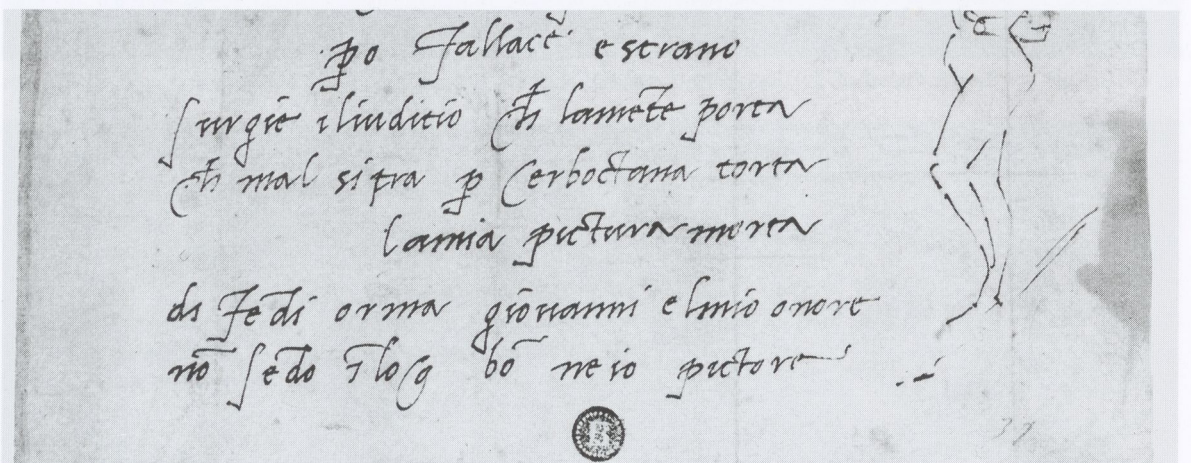 ꝑo fallacē e strano
surgie iliuditio cħ lamēte porta
cħ mal si tra ꝑ cerboctana torta
lamia pictura morta
di fēdi orma giouanni elmio onore
nō sēdo ī loco bō ne io pictore